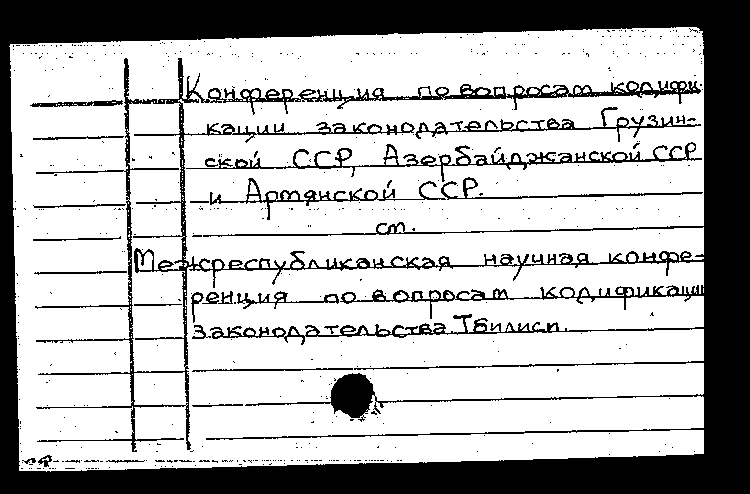 Конференция по вопросам кодифи-
кации законодательства Грузин-
ской ССР, Азербайджанской ССР
и Армянской ССР.
см.
Межреспубликанская научная конфе-
ренция по вопросам кодификации
законодательства Тбилиси.